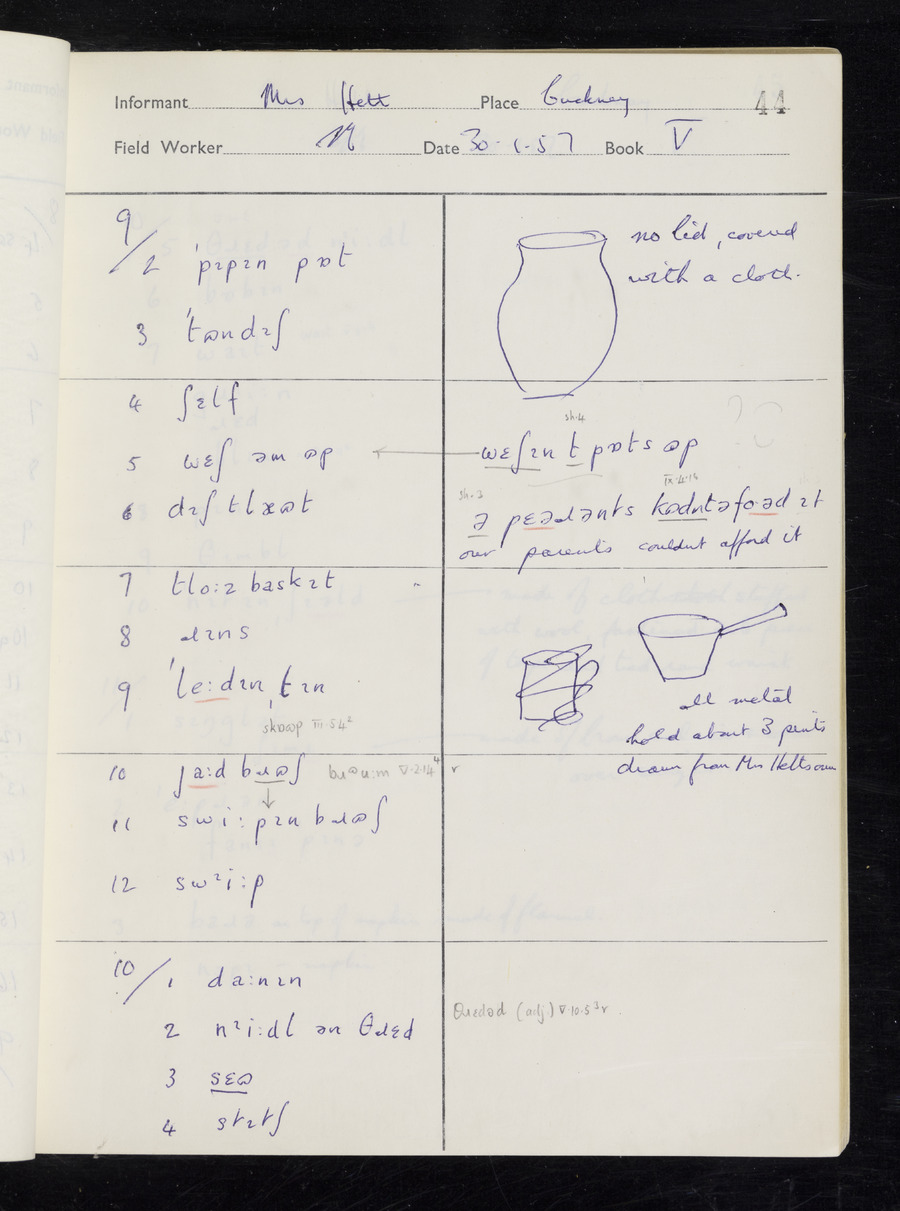 Informant Mrs Hett Place Cuckney 44
Field Worker Date 30·1·57 Book V
9/2 ˈpɪpɪn pɒt
no lid, covered
with a cloth.
3 ˈtɷndɪʃ
4 ʃɛlf
sh.4
5 wɛʃ əm ɷp
wɛʃɪn t pɒts ɷp
6 dɪʃ tlæɷt
sh.3 IX.4.15
ə pɛəɹənts kɷdntəfo·əd ɪt
our parents couldnt afford it
7 tlo:z baskɪt
8 ɹɪns
9 ˈle:dɪn ˌtɪn
skɒɷp III.5.4²
all metal
hold about 3 pints
drawn from Mrs Hett's own
10 ja:d bɹɷʃ bɹɷu:m V.2.14⁴ v
11 swi:pɪn bɹɷʃ
12 swᶦi:p
10/1 da:nɪn
θɹɛdəd (adj.) V.10.5³ v
2 nᶦi:dl ən θɹɛd
3 sɛɷ
4 stɪtʃ